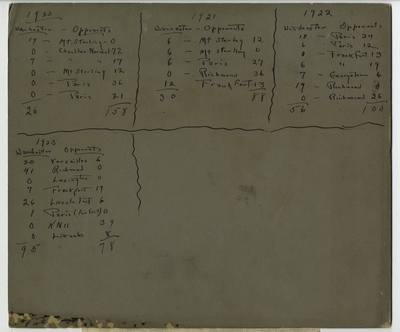 1920
Winchester - Opponents
19 - Mt. Sterling - 0
0 - Normal 72
7 - " " 19
0 - Mt Sterling 12
0 - Paris 36
0 - Paris 21
26 158
1921
Winchester - Opponents
6 - Mt Sterling 12
6 - Mt Sterling 0
6 - Paris 27
0 - Richmond 36
12 - Frankfort 13
30 88
1922
Winchester - Opponents
18 - Paris 24
6 - Paris 12
0 - Frankfort 13
6 " 19
7 - Georgetown 6
19 - Richmond 0
0 - Richmond 26
56 100
1923
Winchester Opponents
20 Versailles 6
41 Richmond 0
0 Lexington 0
7 Frankfort 19
26 Lincoln Inst 6
1 Paris 0
0 KNII 39
0 Lincoln 8
95 78